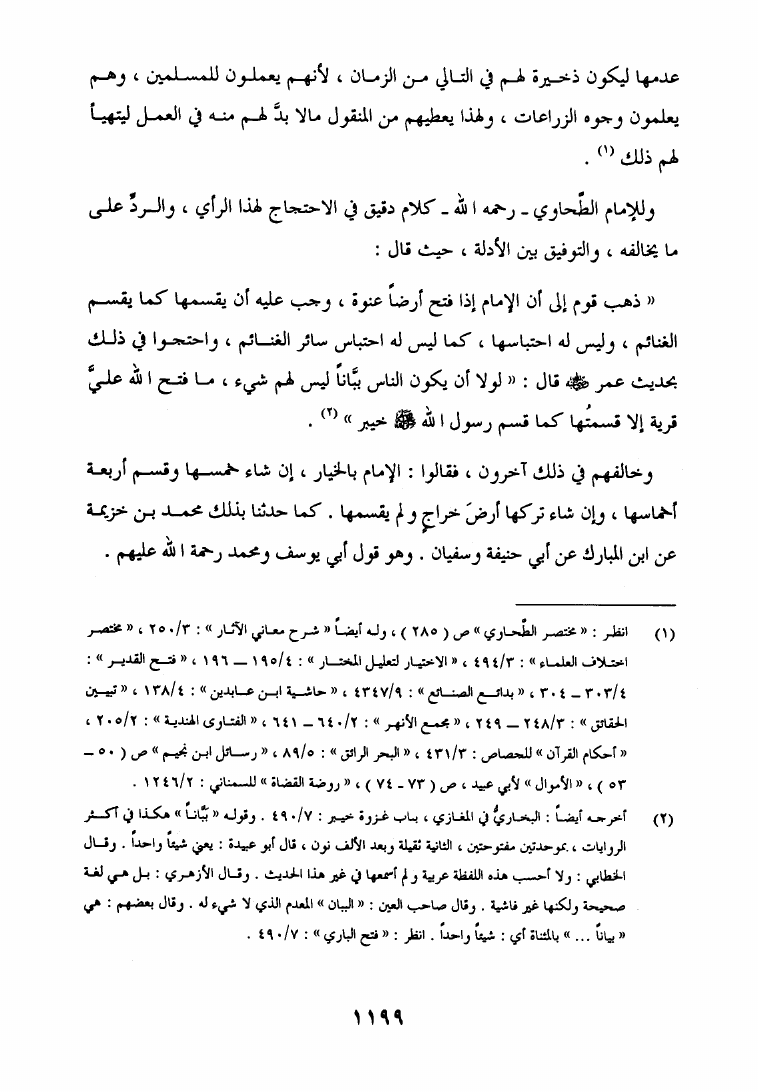 عدمها ليكون ذخيرة لهم في التالي من الزمان ، لأنهم يعملون للمسلمين ، وهم
يعلمون وجوه الزراعات ، ولهذا يعطيهم من المنقول مالا بدَّ لهم منه في العمل ليتهيأ
لهم ذلك (١) .
وللإمام الطَّحاوي - رحمه الله - كلام دقيق في الاحتجاج لهذا الرأي ، والردِّ على
ما يخالفه ، والتوفيق بين الأدلة ، حيث قال :
« ذهب قوم إلى أن الإمام إذا فتح أرضاً عنوة ، وجب عليه أن يقسمها كما يقسم
الغنائم ، وليس له احتباسها ، كما ليس له احتباس سائر الغنائم ، واحتجوا في ذلك
بحديث عمر ﷺ قال : « لولا أن يكون الناس ببَّاناً ليس لهم شيء ، ما فتح الله عليَّ
قرية إلا قسمتُها كما قسم رسول الله ﷺ خيبر » (٢) .
وخالفهم في ذلك آخرون ، فقالوا : الإمام بالخيار ، إن شاء خمسها وقسم أربعة
أخماسها ، وإن شاء تركها أرضَ خراجٍ ولم يقسمها . كما حدثنا بذلك محمد بن خزيمة
عن ابن المبارك عن أبي حنيفة وسفيان . وهو قول أبي يوسف ومحمد رحمة الله عليهم .
(١) انظر : « مختصر الطَّحاوي » ص ( ٢٨٥ ) ، وله أيضاً « شرح معاني الآثار » : ٢٥٠/٣ ، « مختصر
اختلاف العلماء » : ٤٩٤/٣ ، « الاختيار لتعليل المختار » : ١٩٥/٤ – ١٩٦ ، « فتح القدير » :
٣٠٣/٤ – ٣٠٤ ، « بدائع الصنائع » : ٤٣٤٧/٩ ، « حاشية ابن عابدين » : ١٣٨/٤ ، « تبيين
الحقائق » : ٢٤٨/٣ – ٢٤٩ ، « مجمع الأنهر » : ٦٤٠/٢ – ٦٤١ ، « الفتاوى الهندية » : ٢٠٥/٢ ،
« أحكام القرآن » للجصاص : ٤٣١/٣ ، « البحر الرائق » : ٨٩/٥ ، « رسائل ابن نجيم » ص ( ٥٠ –
٥٣ ) ، « الأموال » لأبي عبيد ، ص ( ٧٣ - ٧٤ ) ، « روضة القضاة » للسمناني : ١٢٤٦/٢ .
(٢) أخرجه أيضاً : البخاريُّ في المغازي ، باب غزوة خيبر : ٤٩٠/٧ . وقوله « ببَّاناً » هكذا في أكثر
الروايات ، بموحدتين مفتوحتين ، الثانية ثقيلة وبعد الألف نون ، قال أبو عبيدة : يعني شيئاً واحداً . وقال
الخطابي : ولا أحسب هذه اللفظة عربية ولم أسمعها في غير هذا الحديث . وقال الأزهري : بل هي لغة
صحيحة ولكنها غير فاشية . وقال صاحب العين : « الببان » المعدم الذي لا شيء له . وقال بعضهم : هي
« بياناً ... » بالمثناة أي : شيئاً واحداً . انظر : « فتح الباري » : ٤٩٠/٧ .
١١٩٩